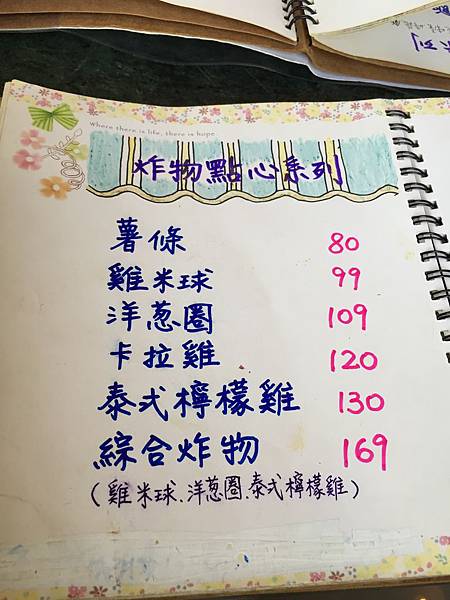 where there is life, there is hope
炸物點心系列
薯條 80
雞米球 99
洋蔥圈 109
卡拉雞 120
泰式檸檬雞 130
綜合炸物 169
(雞米球、洋蔥圈、泰式檸檬雞)